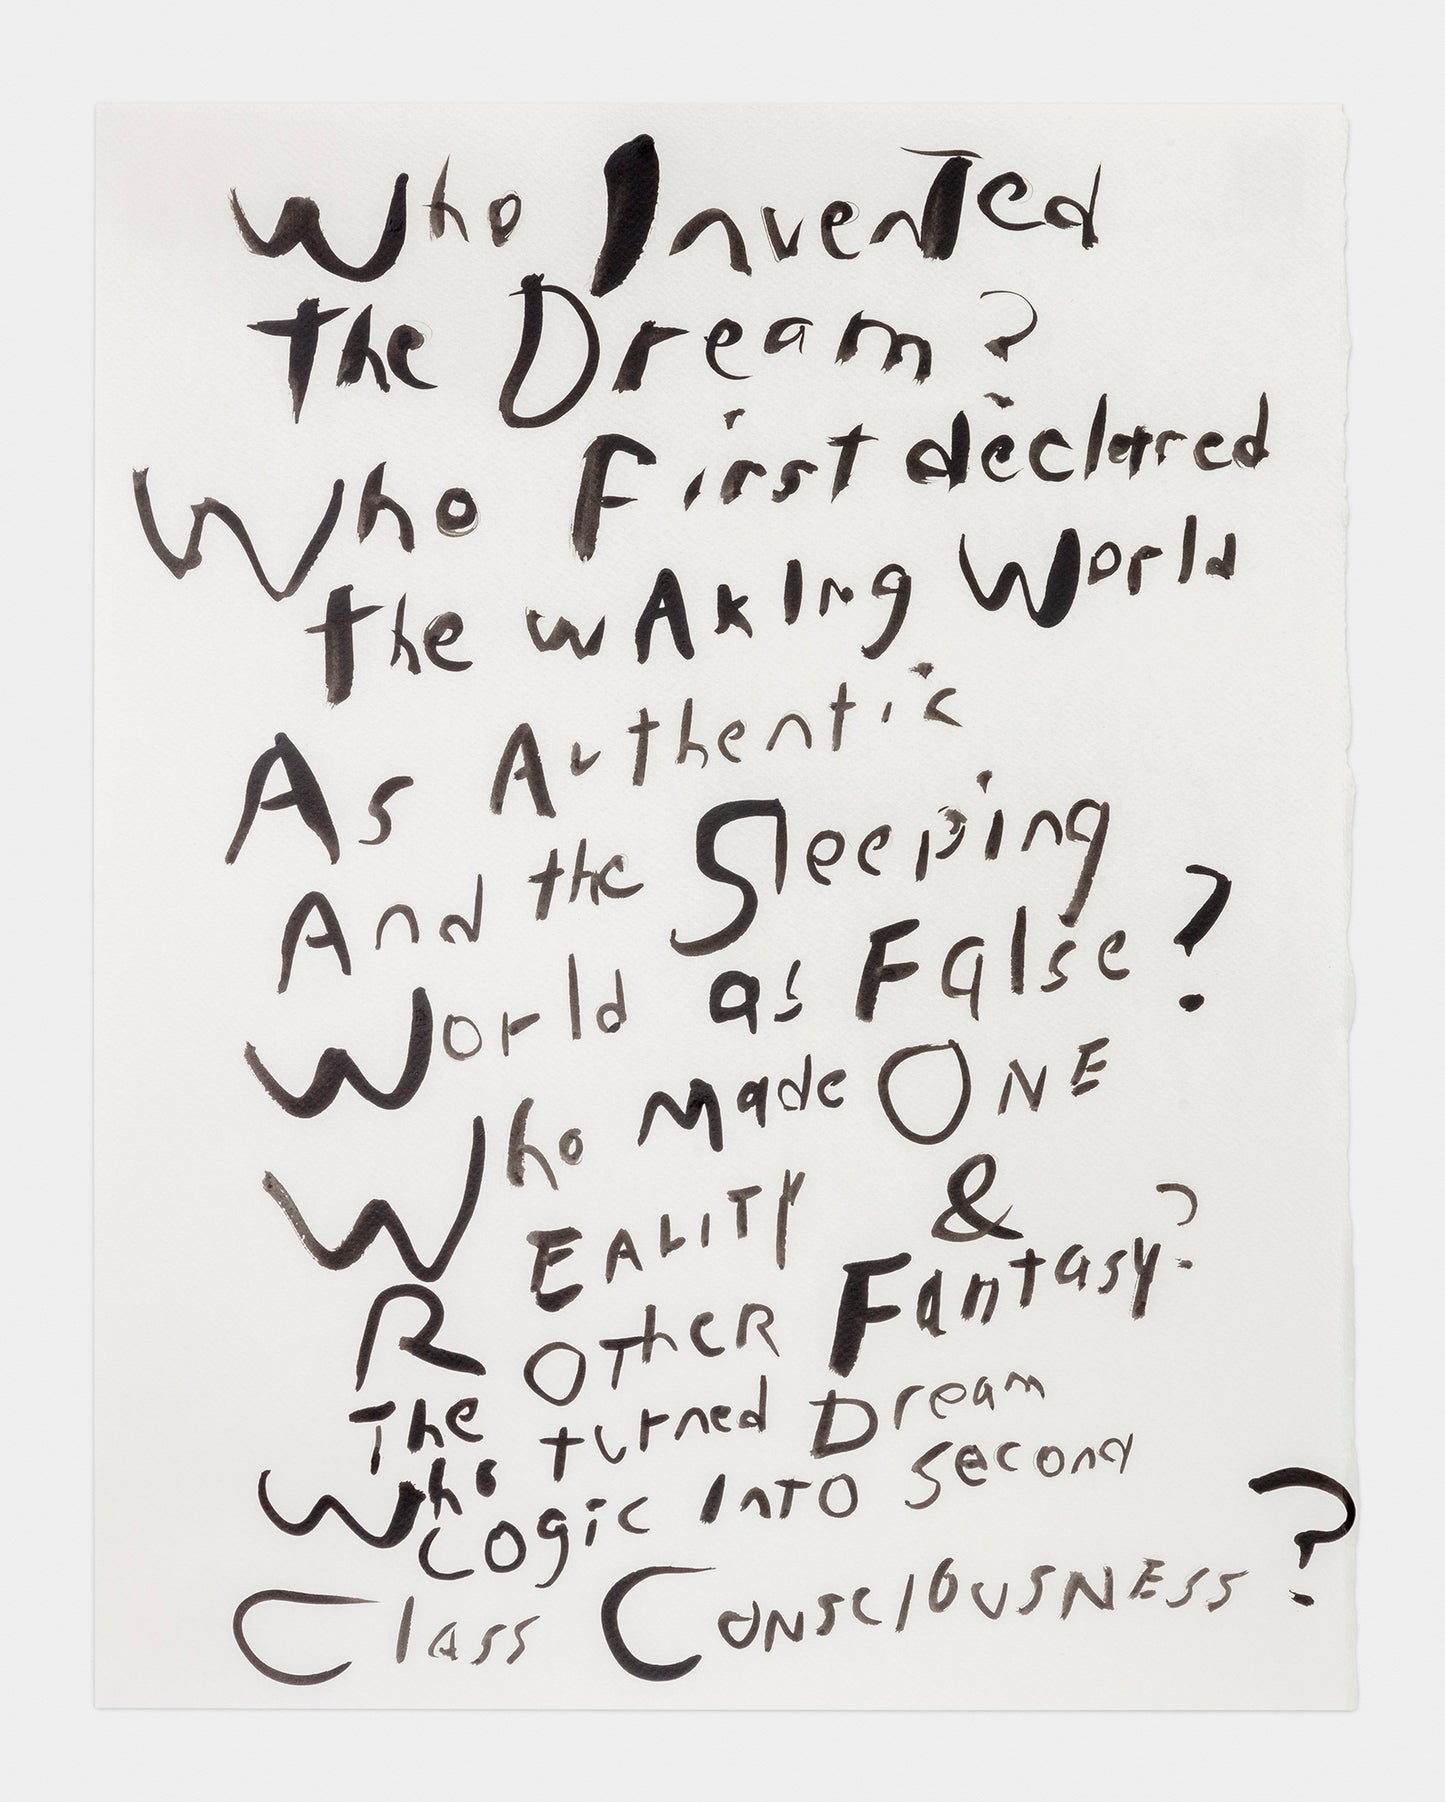 Who Invented
the Dream?
Who First declared
the wAkIng World
As Authentic
And the Sleeping
World as False?
Who made ONE
REALITY &
The OTheR Fantasy?
Who turned Dream
Logic InTO Second
Class ConscIOUSNESS?